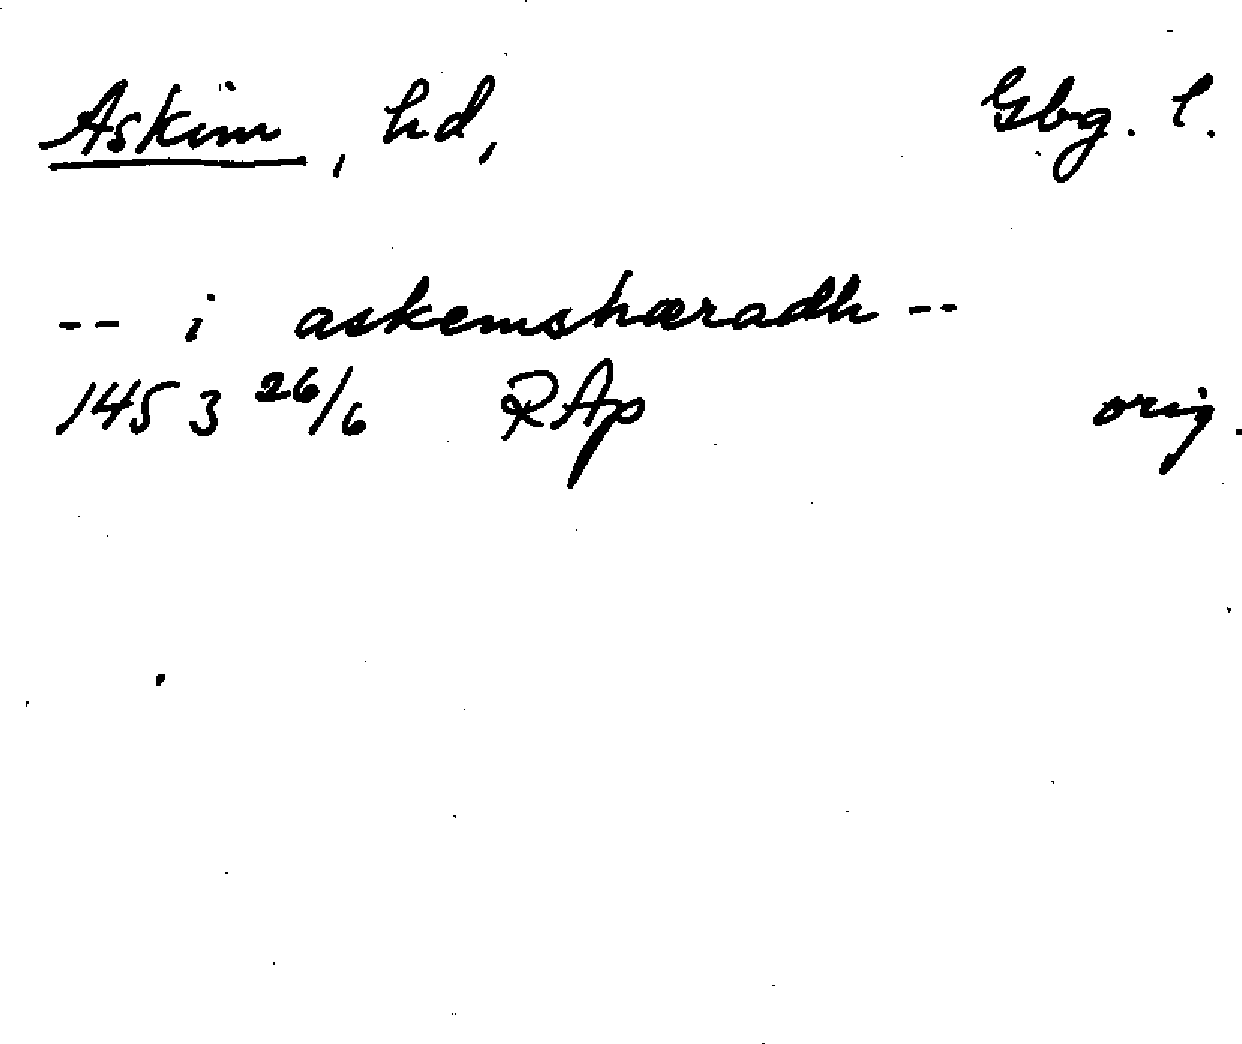 Askim, hd, Gbg. l.
-- i askemshæradh --
1453 26/6 RAp orig.